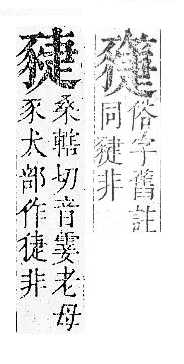 俗字舊註
同非
桑轄切音霎老母
豕犬部作非